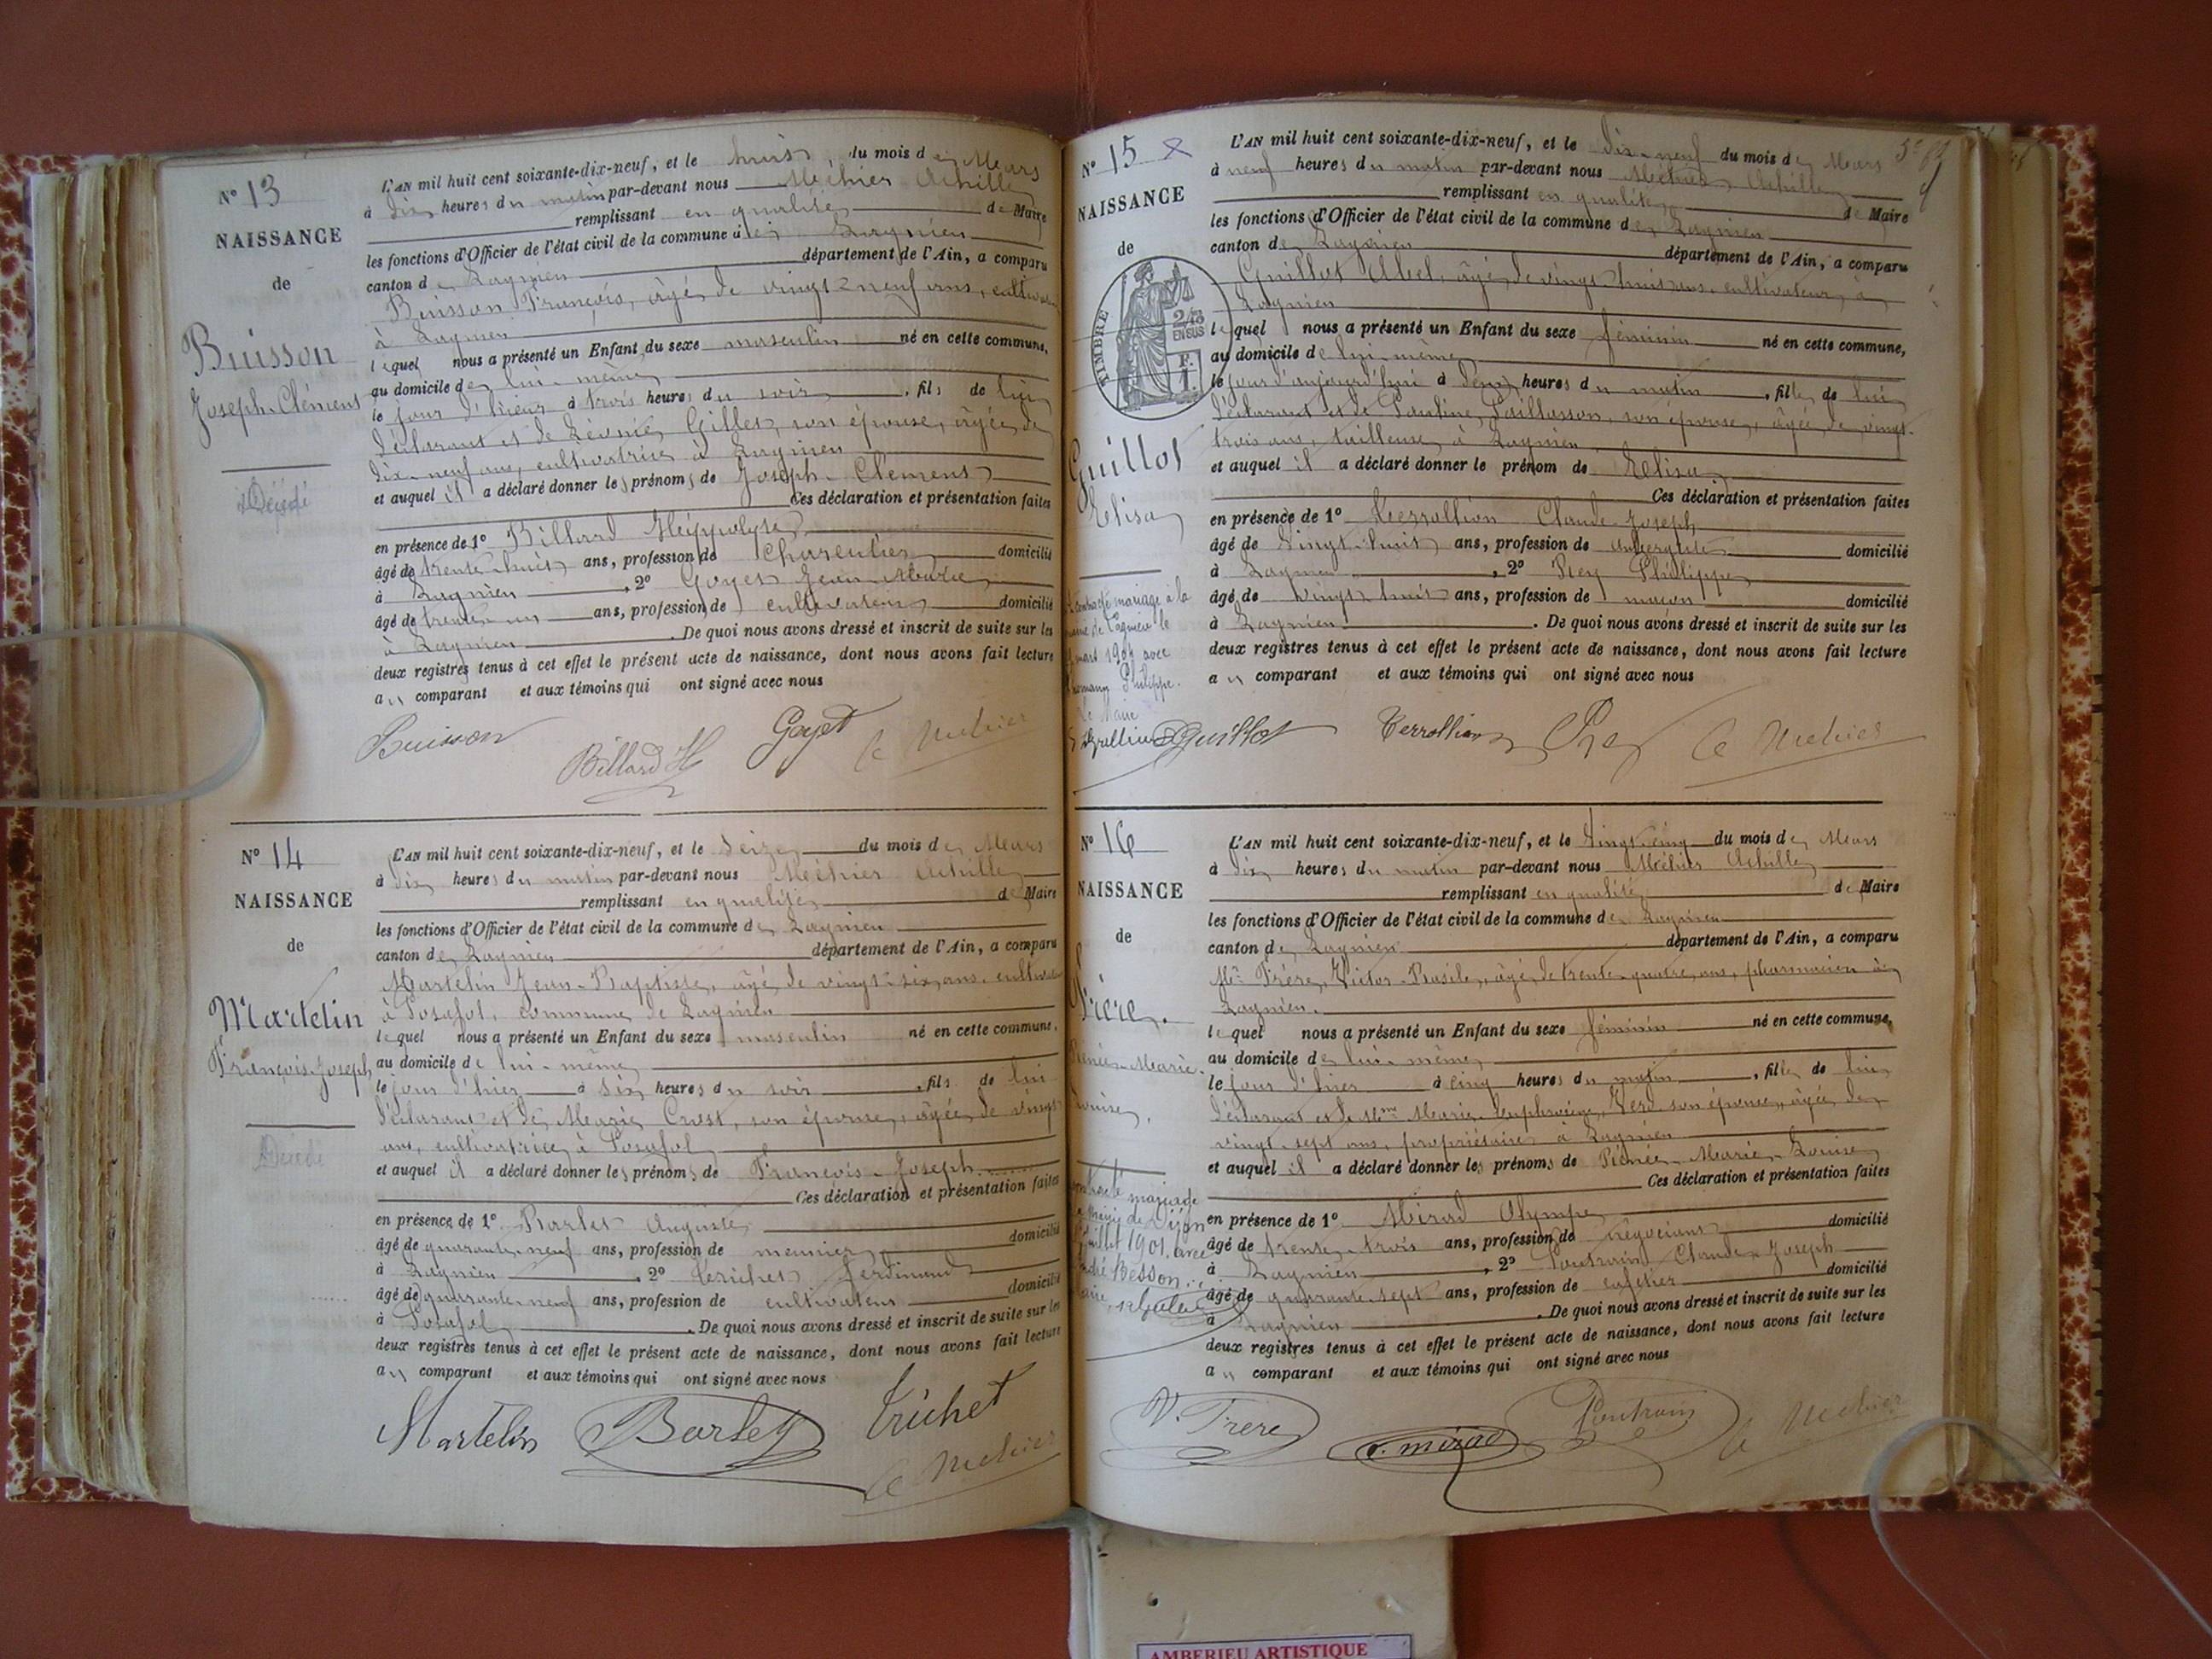 N° 13
NAISSANCE
de
Buisson
Joseph-Clément
Décédé
L'AN mil huit cent soixante-dix-neuf, et le huit, du mois de Mars
à dix heures du matin par-devant nous Méhier Achille
remplissant en qualité de Maire
les fonctions d'Officier de l'état civil de la commune de Lagnieu
canton de Lagnieu département de l'Ain, a comparu
Buisson François, âgé de vingt-neuf ans, cultivateur
à Lagnieu
lequel nous a présenté un Enfant du sexe masculin né en cette commune,
au domicile de lui-même
le jour d'hier à trois heures du soir, fils de lui
déclarant et de Léonie Gillet, son épouse, âgée de
dix-neuf ans, cultivatrice à Lagnieu
et auquel il a déclaré donner les prénoms de Joseph-Clément
Ces déclaration et présentation faites
en présence de 1° Billard Hyppolyte
âgé de trente-huit ans, profession de Charcutier domicilié
à Lagnieu, 2° Goyet Jean-Marie
âgé de trente-un ans, profession de cultivateur domicilié
à Lagnieu. De quoi nous avons dressé et inscrit de suite sur les
deux registres tenus à cet effet le présent acte de naissance, dont nous avons fait lecture
au comparant et aux témoins qui ont signé avec nous
Buisson Billard H Goyet A Mehier
N° 14
NAISSANCE
de
Martelin
François-Joseph
Décédé
L'AN mil huit cent soixante-dix-neuf, et le seize du mois de Mars
à dix heures du matin par-devant nous Méhier Achille
remplissant en qualité de Maire
les fonctions d'Officier de l'état civil de la commune de Lagnieu
canton de Lagnieu département de l'Ain, a comparu
Martelin Jean-Baptiste, âgé de vingt-six ans, cultivateur
à Posafol, commune de Lagnieu
lequel nous a présenté un Enfant du sexe masculin né en cette commune,
au domicile de lui-même
le jour d'hier à six heures du soir, fils de lui
déclarant et de Marie Crost, son épouse, âgée de vingt
ans, cultivatrice à Posafol
et auquel il a déclaré donner les prénoms de François-Joseph
Ces déclaration et présentation faites
en présence de 1° Barlet Auguste
âgé de quarante-neuf ans, profession de meunier domicilié
à Lagnieu, 2° Trichet Ferdinand
âgé de quarante-neuf ans, profession de cultivateur domicilié
à Posafol. De quoi nous avons dressé et inscrit de suite sur les
deux registres tenus à cet effet le présent acte de naissance, dont nous avons fait lecture
au comparant et aux témoins qui ont signé avec nous
Martelin Barlet Trichet
A Mehier
N° 15
NAISSANCE
de
TIMBRE
2/10 EN SUS
F. 1.
Guillot
Elisa
contracté mariage à la
mairie de Lagnieu le
mars 1904 avec
Philippe.
Le Maire
L'AN mil huit cent soixante-dix-neuf, et le dix-neuf du mois de Mars
à neuf heures du matin par-devant nous Méhier Achille
remplissant en qualité de Maire
les fonctions d'Officier de l'état civil de la commune de Lagnieu
canton de Lagnieu département de l'Ain, a comparu
Guillot Abel, âgé de vingt-huit ans, cultivateur, à
Lagnieu
lequel nous a présenté un Enfant du sexe féminin né en cette commune,
au domicile de lui-même
le jour d'aujourd'hui à deux heures du matin, fille de lui
déclarant et de Pauline Paillasson, son épouse, âgée de vingt-
trois ans, tailleuse à Lagnieu
et auquel il a déclaré donner le prénom de Elisa
Ces déclaration et présentation faites
en présence de 1° Terrollion Claude-Joseph
âgé de vingt-huit ans, profession de aubergiste domicilié
à Lagnieu, 2° Rey Philippe
âgé de vingt-huit ans, profession de maçon domicilié
à Lagnieu. De quoi nous avons dressé et inscrit de suite sur les
deux registres tenus à cet effet le présent acte de naissance, dont nous avons fait lecture
au comparant et aux témoins qui ont signé avec nous
Guillot Terrollion Rey A Mehier
N° 16
NAISSANCE
de
Frère.
Renée-Marie-
Louise.
contracté mariage
mairie de Dijon
juillet 1901 avec
André Besson
L'AN mil huit cent soixante-dix-neuf, et le vingt-cinq du mois de Mars
à dix heures du matin par-devant nous Méhier Achille
remplissant en qualité de Maire
les fonctions d'Officier de l'état civil de la commune de Lagnieu
canton de Lagnieu département de l'Ain, a comparu
Mr Frère, Victor-Basile, âgé de trente-quatre ans, pharmacien à
Lagnieu.
lequel nous a présenté un Enfant du sexe féminin né en cette commune,
au domicile de lui-même
le jour d'hier à cinq heures du matin, fille de lui
déclarant et de Mme Marie son épouse, âgée de
vingt-sept ans, propriétaire à Lagnieu
et auquel il a déclaré donner les prénoms de Renée-Marie-Louise
Ces déclaration et présentation faites
en présence de 1° Mirad Olympe
âgé de trente-trois ans, profession de négociant domicilié
à Lagnieu, 2° Poutrain Claude-Joseph
âgé de quarante-sept ans, profession de cafetier domicilié
à Lagnieu. De quoi nous avons dressé et inscrit de suite sur les
deux registres tenus à cet effet le présent acte de naissance, dont nous avons fait lecture
au comparant et aux témoins qui ont signé avec nous
V. Frere o. mirad Poutrain A Mehier
AMBERIEU ARTISTIQUE